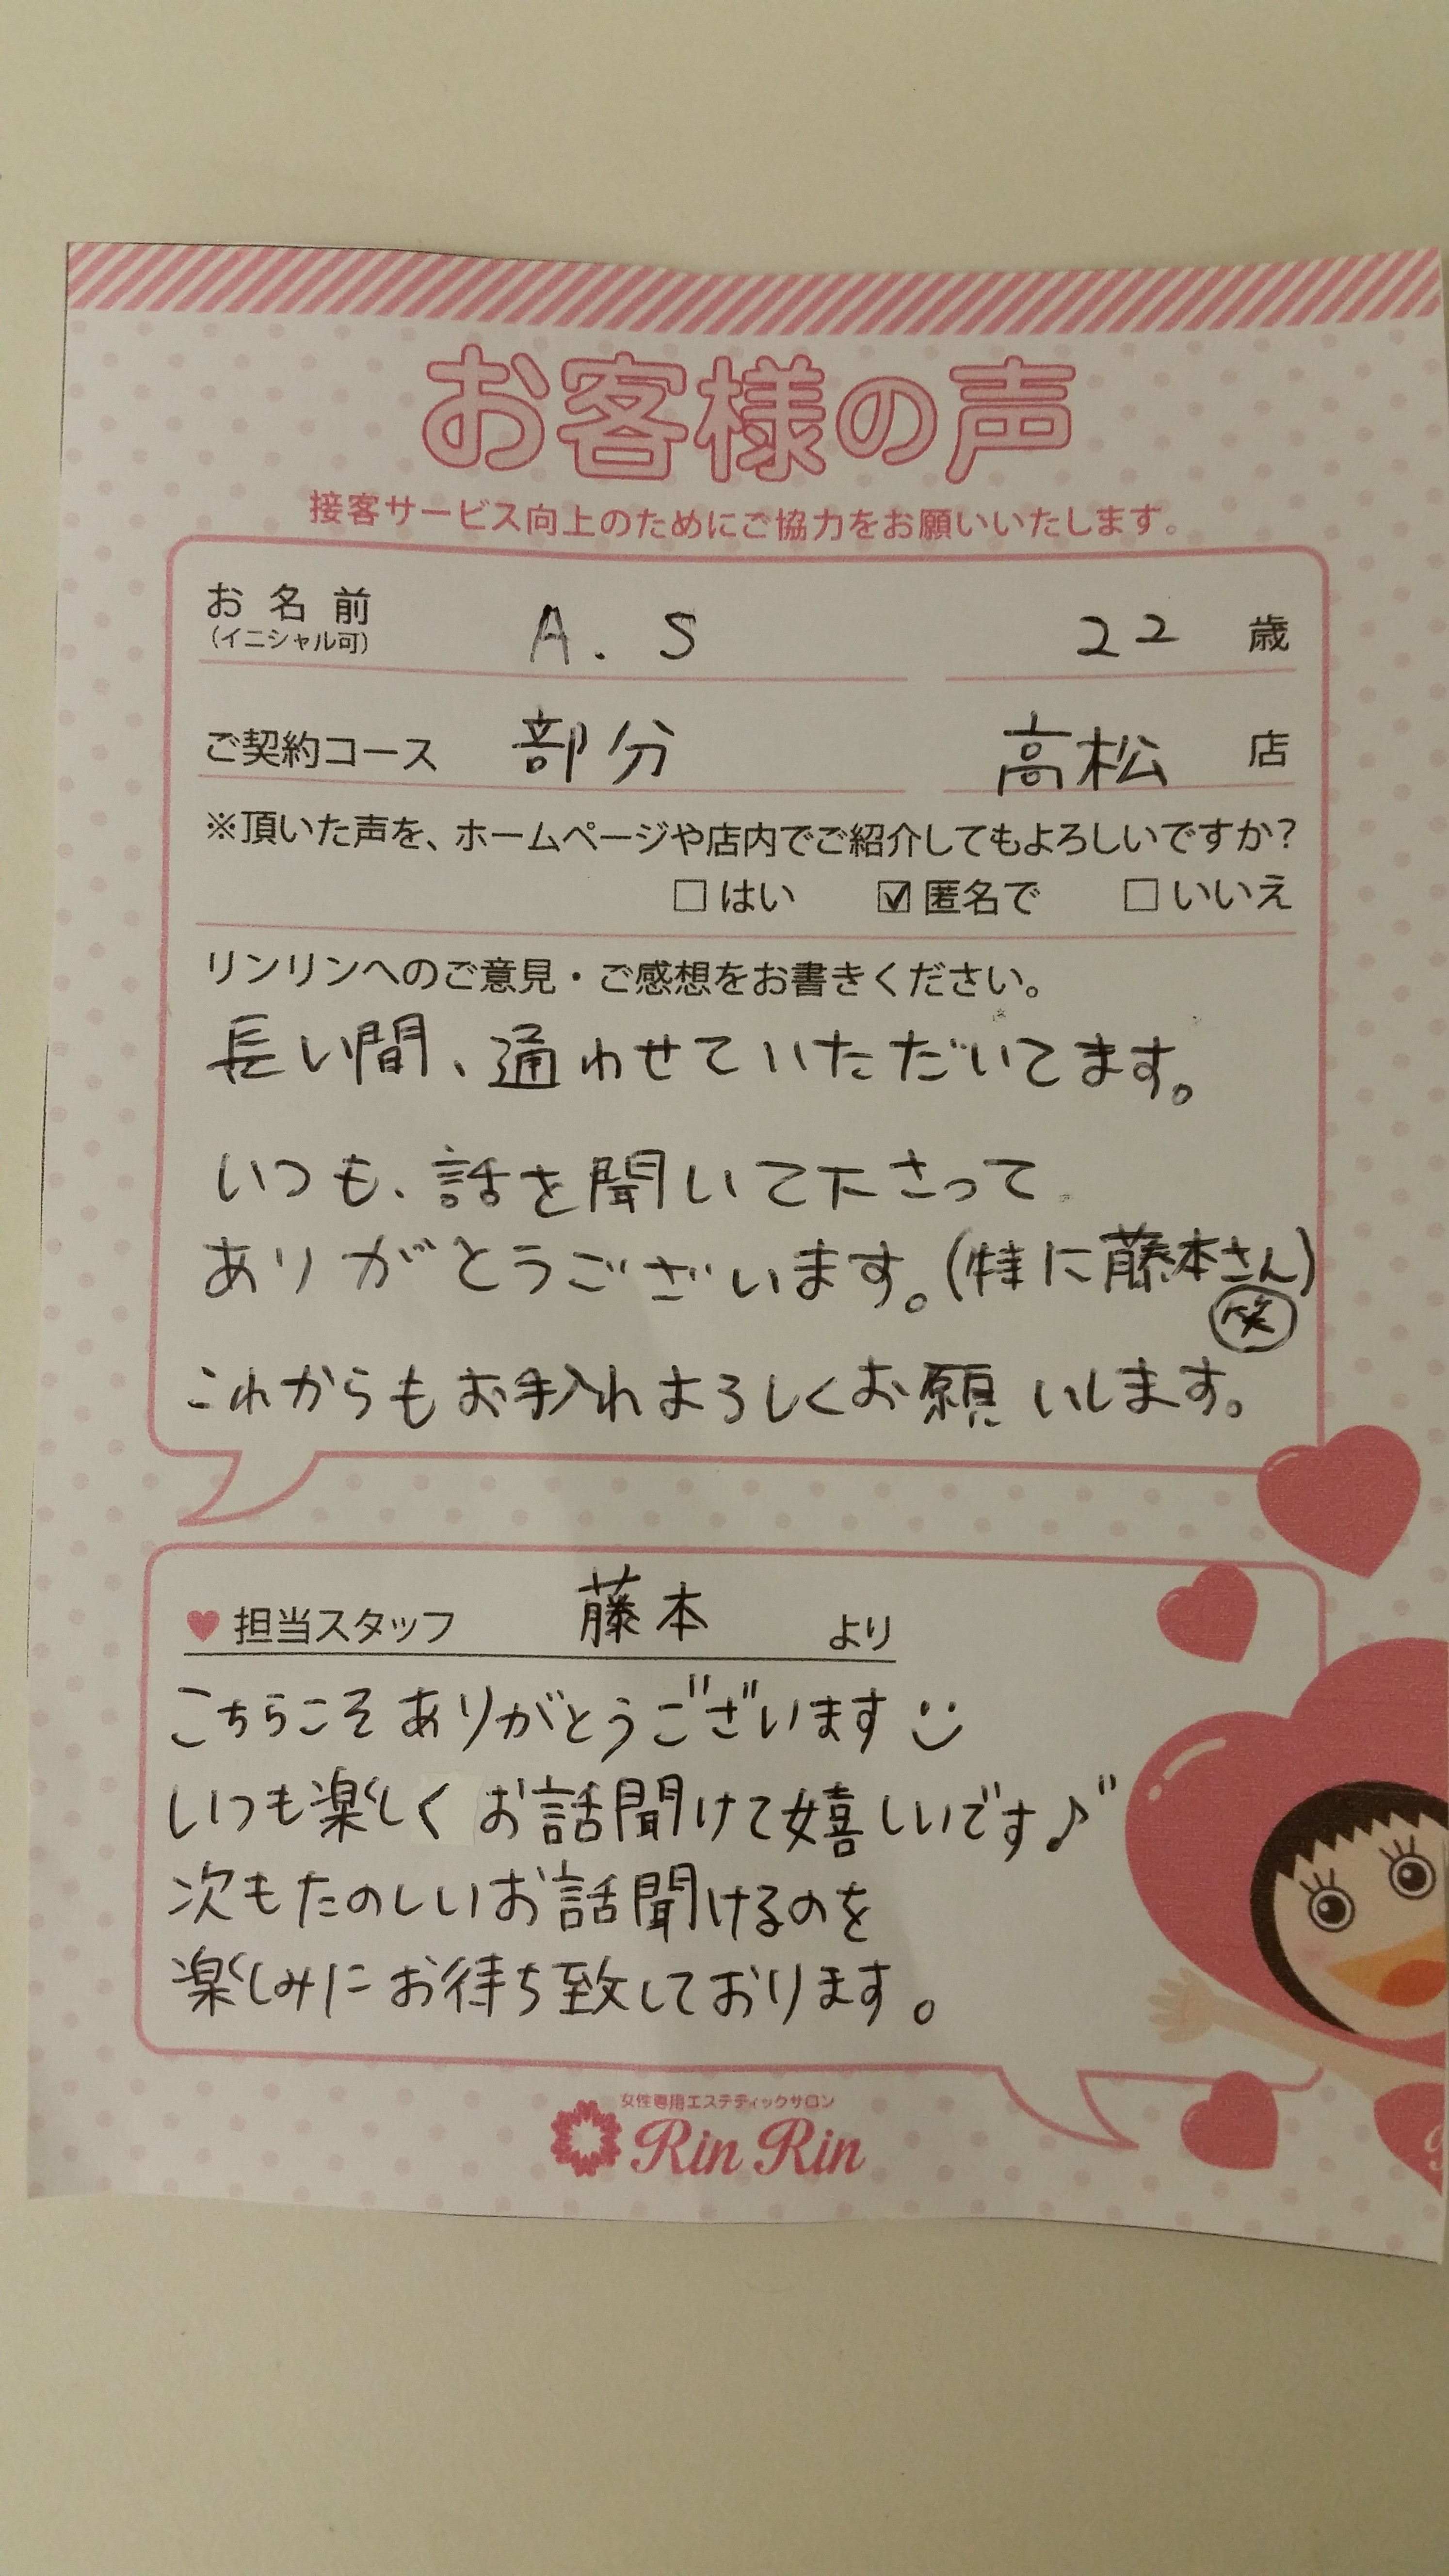 お客様の声
接客サービス向上のためにご協力をお願いいたします。
お名前 A.S 22 歳
(イニシャル可)
ご契約コース 部分 高松 店
※頂いた声を、ホームページや店内でご紹介してもよろしいですか?
□はい ☑匿名で □いいえ
リンリンへのご意見・ご感想をお書きください。
長い間、通わせていただいてます。
いつも、話を聞いて下さって
ありがとうございます。(特に藤本さん)
笑
これからもお手入れよろしくお願いします。
♥担当スタッフ 藤本 より
こちらこそありがとうございます
いつも楽しくお話聞けて嬉しいです♪"
次もたのしいお話聞けるのを
楽しみにお待ち致しております。
女性専用エステティックサロン
Rin Rin